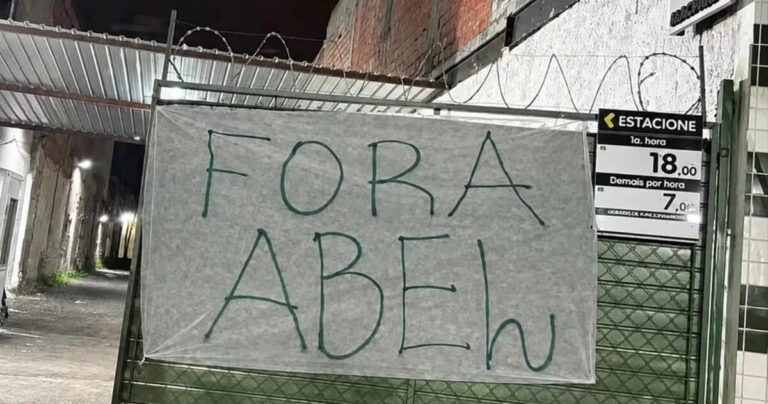 FORA
ABEL
ESTACIONE
1a. hora
18,00
Demais por hora
7,00